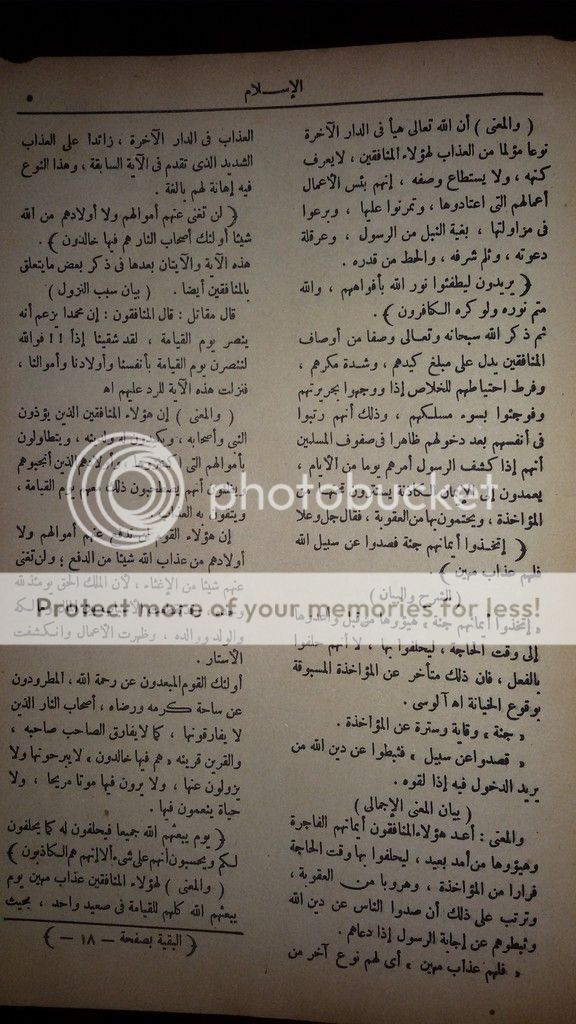 الإسلام
٥
( والمعنى ) أن الله تعالى هيأ فى الدار الآخرة
نوعا مؤلما من العذاب لهؤلاء المنافقين ، لايعرف
كنهه ، ولا يستطاع وصفه ، إنهم بئس الأعمال
أعمالهم التى اعتادوها ، وتمرنوا عليها ، وبرعوا
فى مزاولتها ، بغية النيل من الرسول ، وعرقلة
دعوته ، وثلم شرفه ، والحط من قدره .
( يريدون ليطفئوا نور الله بأفواههم ، والله
متم نوره ولو كره الكافرون ) .
ثم ذكر الله سبحانه وتعالى وصفا من أوصاف
المنافقين يدل على مبلغ كيدهم ، وشدة مكرهم ،
وفرط احتياطهم للخلاص إذا ووجهوا بجريرتهم
وفوجئوا بسوء مسلكهم ، وذلك أنهم رتبوا
فى أنفسهم بعد دخولهم ظاهرا فى صفوف المسلمين
أنهم إذا كشف الرسول أمرهم يوما من الأيام ،
يعمدون إلى الأيمان الكاذبة يستترون تحتها من
المؤاخذة ، ويحتمون بها من العقوبة ، فقال جل وعلا
( إتخذوا أيمانهم جنة فصدوا عن سبيل الله
فلهم عذاب مهين ) .
( الشرح والبيان )
« إتخذوا أيمانهم جنة » هيؤوها من قبل وأعدوها
إلى وقت الحاجة ، ليحلفوا بها ، لا أنهم حلفوا
بالفعل ، فان ذلك متأخر عن المؤاخذة المسبوقة
بوقوع الخيانة اه آلوسى .
« جنة » وقاية وسترة عن المؤاخذة .
« فصدوا عن سبيل » فثبطوا عن دين الله من
يريد الدخول فيه إذا لقوه .
( بيان المعنى الإجمالى )
والمعنى : أعد هؤلاء المنافقون أيمانهم الفاجرة
وهيؤوها من أمد بعيد ، ليحلفوا بها وقت الحاجة
فرارا من المؤاخذة ، وهروبا من العقوبة ،
وترتب على ذلك أن صدوا الناس عن دين الله
وثبطوهم عن إجابة الرسول إذا دعاهم .
« فلهم عذاب مهين » أى لهم نوع آخر من
العذاب فى الدار الآخرة ، زائداً على العذاب
الشديد الذى تقدم فى الآية السابقة ، وهذا النوع
فيه إهانة لهم بالغة .
( لن تغنى عنهم أموالهم ولا أولادهم من الله
شيئا أولئك أصحاب النار هم فيها خالدون ) .
هذه الآية والآيتان بعدها فى ذكر بعض مايتعلق
بالمنافقين أيضا . ( بيان سبب النزول )
قال مقاتل : قال المنافقون : إن محمدا يزعم أنه
ينصر يوم القيامة ، لقد شقينا إذاً !! فوالله
لننصرن يوم القيامة بأنفسنا وأولادنا وأموالنا ،
فنزلت هذه الآية للرد عليهم اه
( والمعنى ) إن هؤلاء المنافقين الذين يؤذون
النبى وأصحابه ، ويكيدون له ولدينه ، ويتطاولون
بأموالهم التى وأولادهم الذين أنجبوهم
ويظنون أنهم يستطيعون ذلك معهم يوم القيامة ،
ويتقون به العذاب .
إن هؤلاء القوم لن تدفع عنهم أموالهم ولا
أولادهم من عذاب الله شيئا من الدفع ؛ ولن تغنى
عنهم شيئا من الإغناء ، لأن الملك الحق يومئذ لله
والولد ووالده ، وظهرت الأعمال وانكشفت
الأستار .
أولئك القوم المبعدون عن رحمة الله ، المطرودون
عن ساحة كرمه ورضاه ، أصحاب النار الذين
لا يفارقونها ، كما لايفارق الصاحب صاحبه ،
والقرين قرينه « هم فيها خالدون » لايبرحونها ولا
يزولون عنها ، ولا يرون فيها موتا مريحا ، ولا
حياة ينعمون فيها .
( يوم يبعثهم الله جميعا فيحلفون له كما يحلفون
لكم ويحسبون أنهم على شىء ألا إنهم هم الكاذبون )
( والمعنى ) لهؤلاء المنافقين عذاب مهين يوم
يبعثهم الله كلهم للقيامة فى صعيد واحد ، بحيث
( البقية بصفحة – ١٨ – )
photobucket
Protect more of your memories for less!